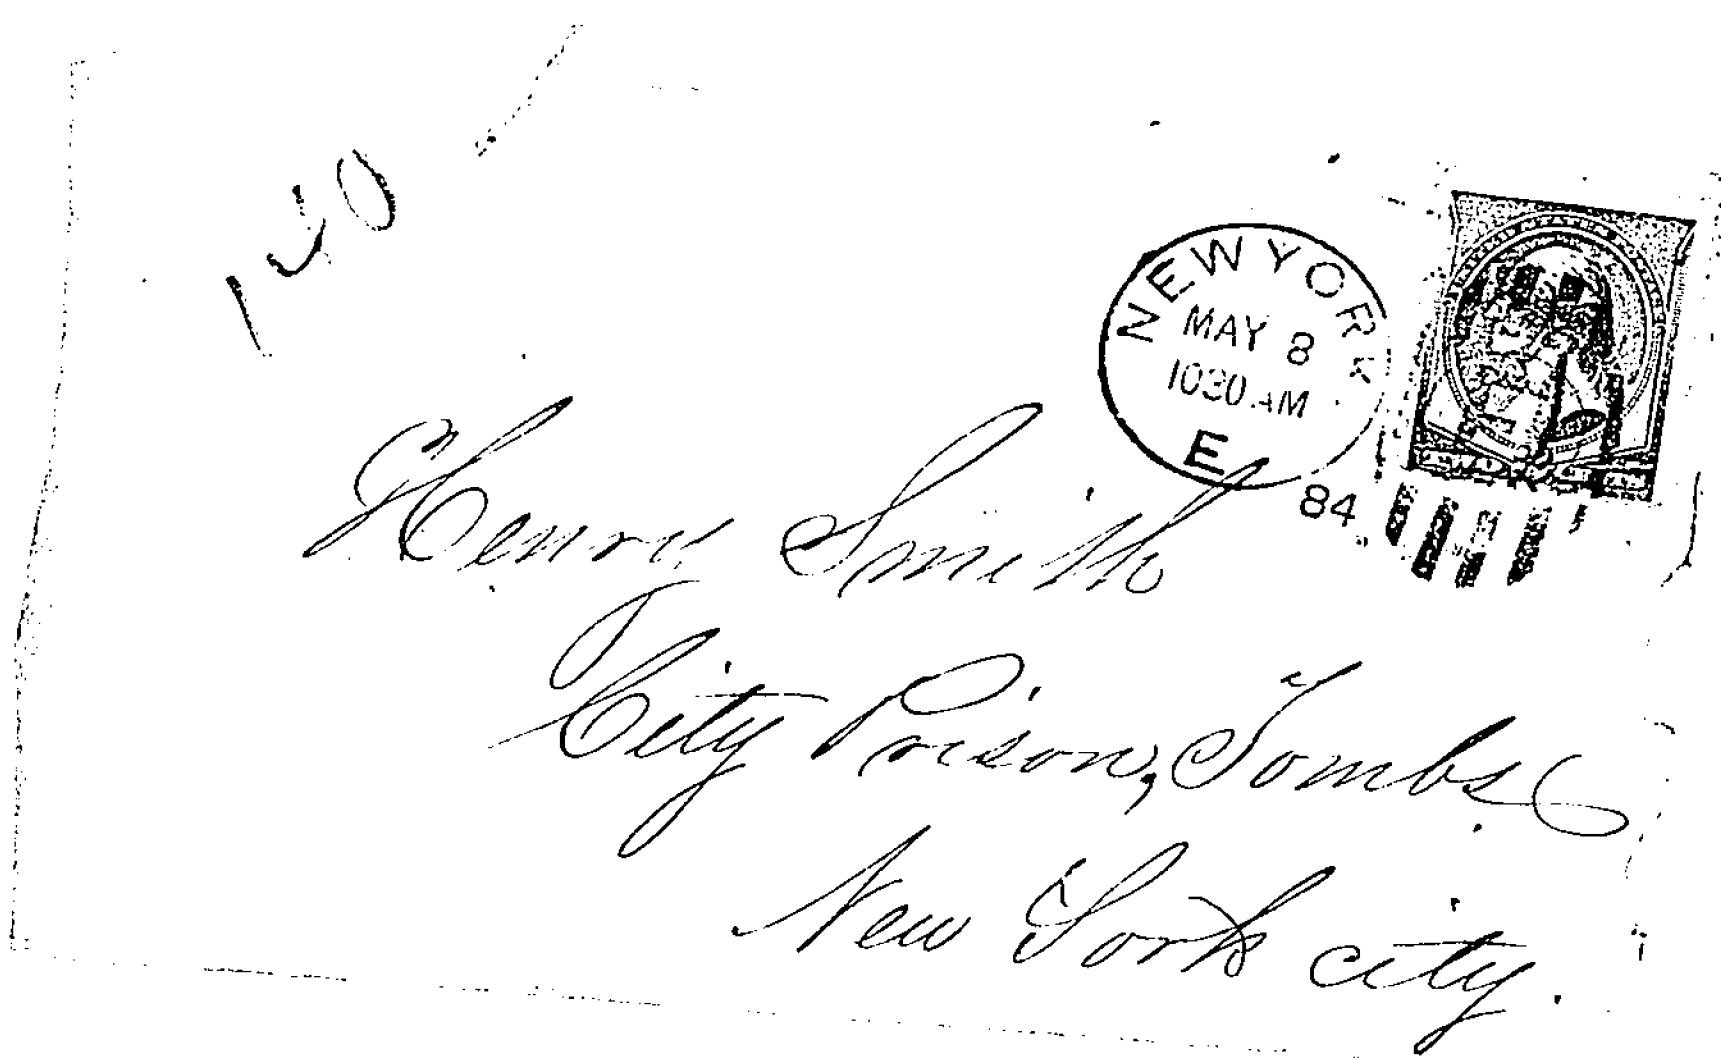 140
NEW YORK
MAY 8
1030 AM
E
84
Henry Smith
City Prison, Tombs
New York city.